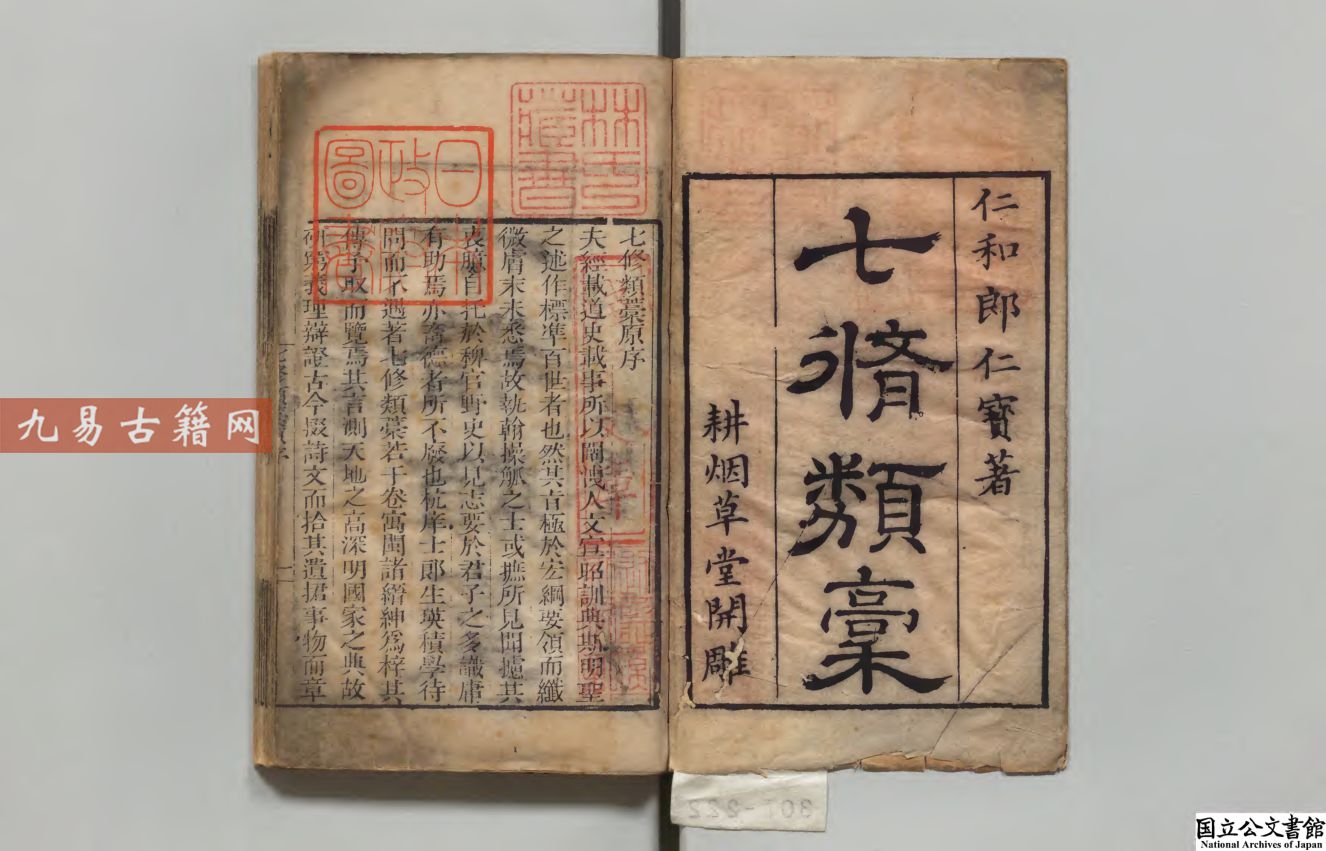 仁和郎仁寶著
七脩類稾
耕烟草堂開雕
七修類藁原序
夫經載道史載事所以闡洩人文宣昭訓典斯明聖
之述作標準百世者也然其旨極於宏綱要領而纖
微膚末未悉焉故執翰操觚之士或摭所見聞攄其
衷臆自托於稗官野史以見志要於君子之多識庸
有助焉亦畜德者所不廢也杭庠士郎生瑛積學待
問而不遇著七修類藁若干卷寓閩諸縉紳爲梓其
傳予取而覽焉其言測天地之高深明國家之典故
研窮義理辯證古今掇詩文而拾其遺捃事物而章
林氏
藏書
日本
政府
圖書
九易古籍网
307-222
国立公文書館
National Archives of Japan